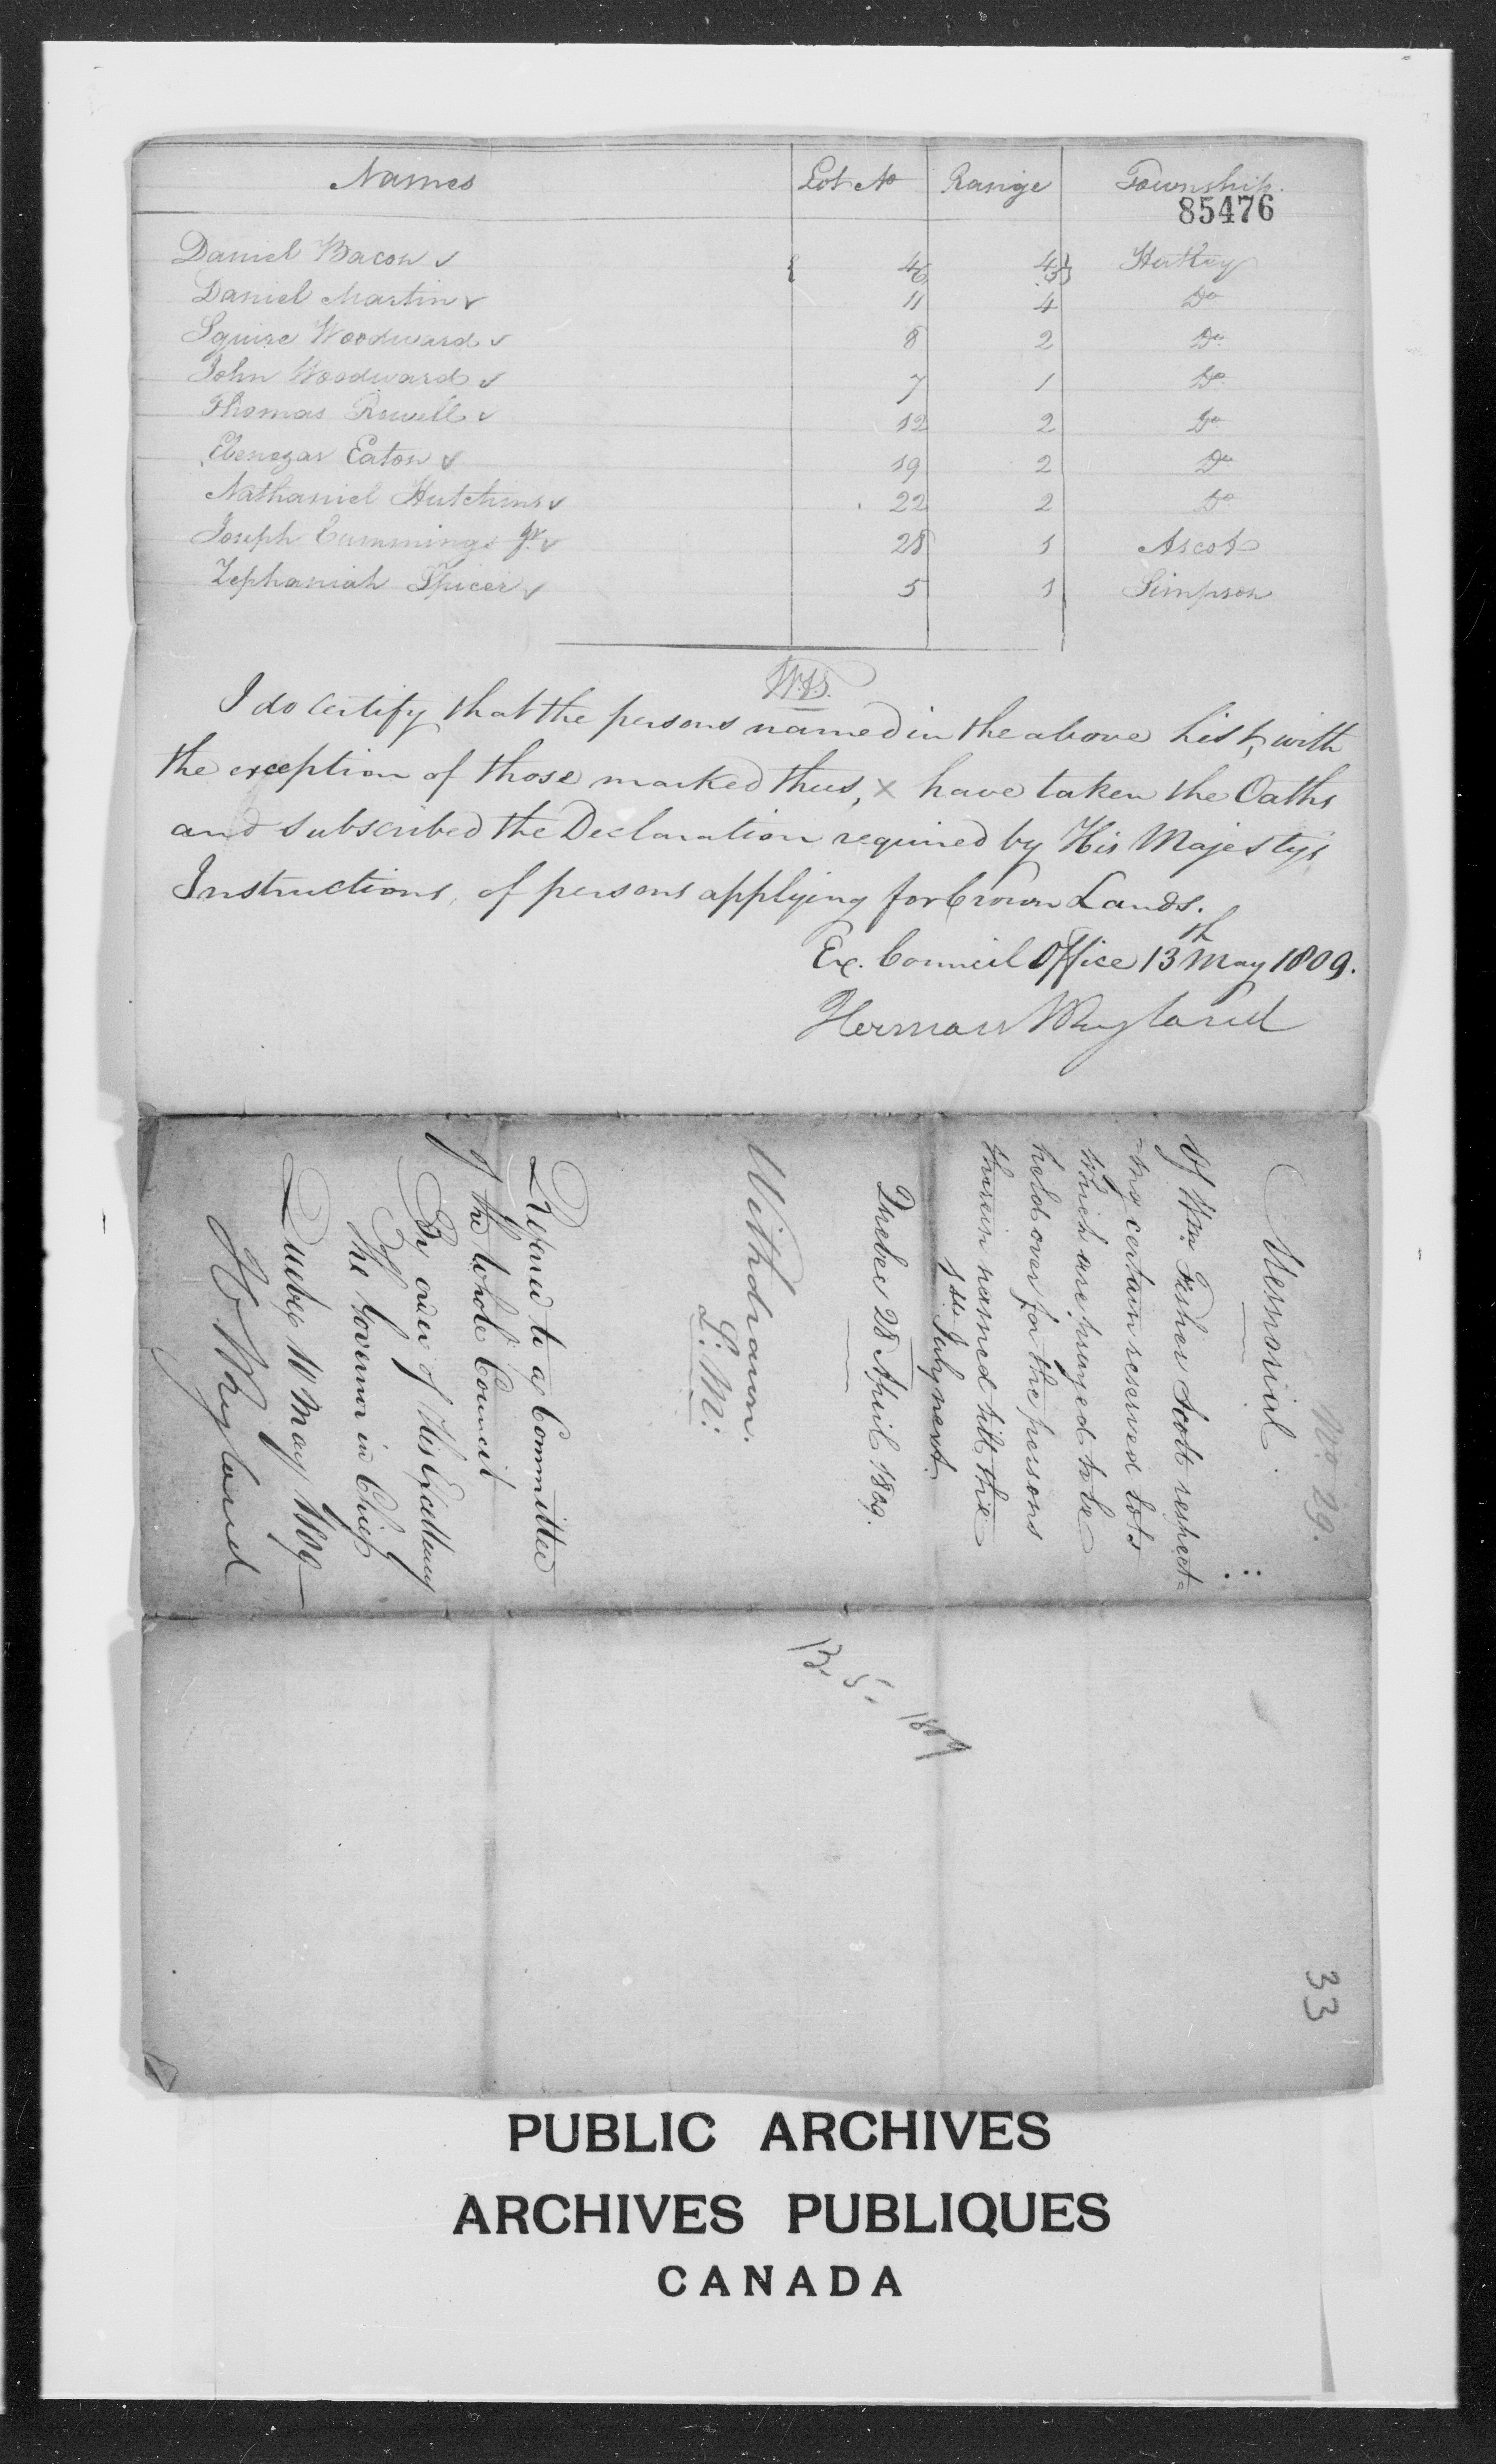 Names Lot No Range Township
85476
Daniel Bacon 4 6 4 5 Hatley
Daniel Martin 11 4 Do
Squire Woodward 8 2 Do
John Woodward 7 1 Do
Thomas Rowell 12 2 Do
Ebenezar Eaton 19 2 Do
Nathaniel Hutchins 22 2 Do
Joseph Cummings Jr. 28 1 Ascot
Zephaniah Spicer 5 1 Simpson
I do certify that the persons named in the above List, with
the exception of those marked thus, x have taken the Oaths
and subscribed the Declaration required by His Majestys
Instructions, of persons applying for Crown Lands.
Ex. Council Office 13th May 1809.
Herman W Ryland
No 29.
Memorial
of Wm. Fisher Scott respect=
=ing certain reserved Lots
which are prayed to be
held over for the persons
therein named till the
1st July next.
Quebec 28 April 1809.
Withdrawn.
L: M:
Referred to a Committee
of the whole Council
By order of His Excellency
The Governor in Chief
Quebec May 1809
H W Ryland
5. 1809
33
PUBLIC ARCHIVES
ARCHIVES PUBLIQUES
CANADA